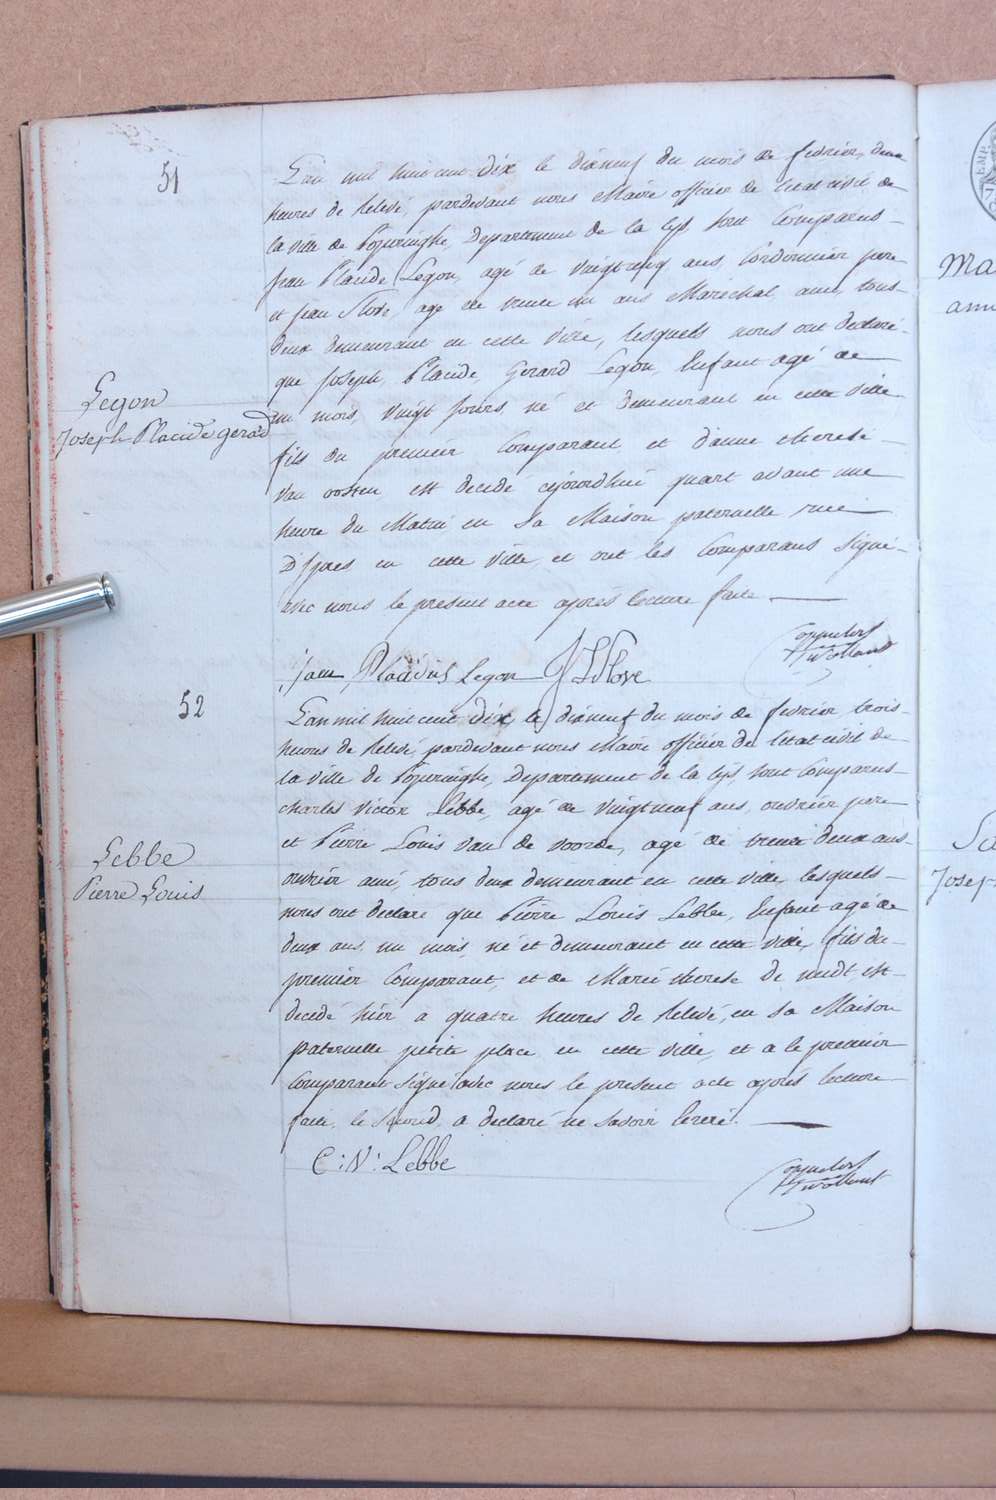 51
L'an mil huit cent dix le dixneuf du mois de fevrier, deux
heures de Relevé, pardevant nous Maire officier de l'etat civil de
la ville de Poperinghe, Departement de la Lys, sont Comparus
Jean Placide Legon, agé de vingtcinq ans, Cordonnier pere
et Jean Slove agé de trente un ans Marechal, ami, tous
deux demeurant en cette ville, lesquels nous ont declaré
que Joseph, Placide, Gerard Legon, Enfant agé de
un mois, vingt jours, né et demeurant en cette ville
fils du premier Comparant et d'anne therese
van oosten est decedé cejourd'hui quart avant une
heure du Matin en sa Maison paternelle rue
D'Ypres en cette ville, et ont les Comparans signé
avec nous le present acte aprés lecture faite
Legon
Joseph Placide gerard
Joan Placidus Legon
52
L'an mil huit cent dix le dixneuf du mois de fevrier trois
heures de Relevé pardevant nous Maire officier de l'etat civil de
la ville de Poperinghe, Departement de la Lys, sont Comparus
charles victor Lebbe, agé de vingtneuf ans, ouvrier pere
et Pierre Louis van de voorde, agé de trente deux ans
ouvrier ami, tous deux demeurant en cette ville, lesquels
nous ont declaré que Pierre Louis Lebbe, Enfant agé de
deux ans, un mois, né et demeurant en cette ville, fils du
premier Comparant, et de Marie therese de nudt est
decedé hier a quatre heures de Relevé, en sa Maison
paternelle petite place en cette ville, et a le premier
Comparant signé avec nous le present acte aprés lecture
faite, le second, a declaré ne savoir
Lebbe
Pierre Louis
C: V: Lebbe
Ma
ann
Sa
Josep